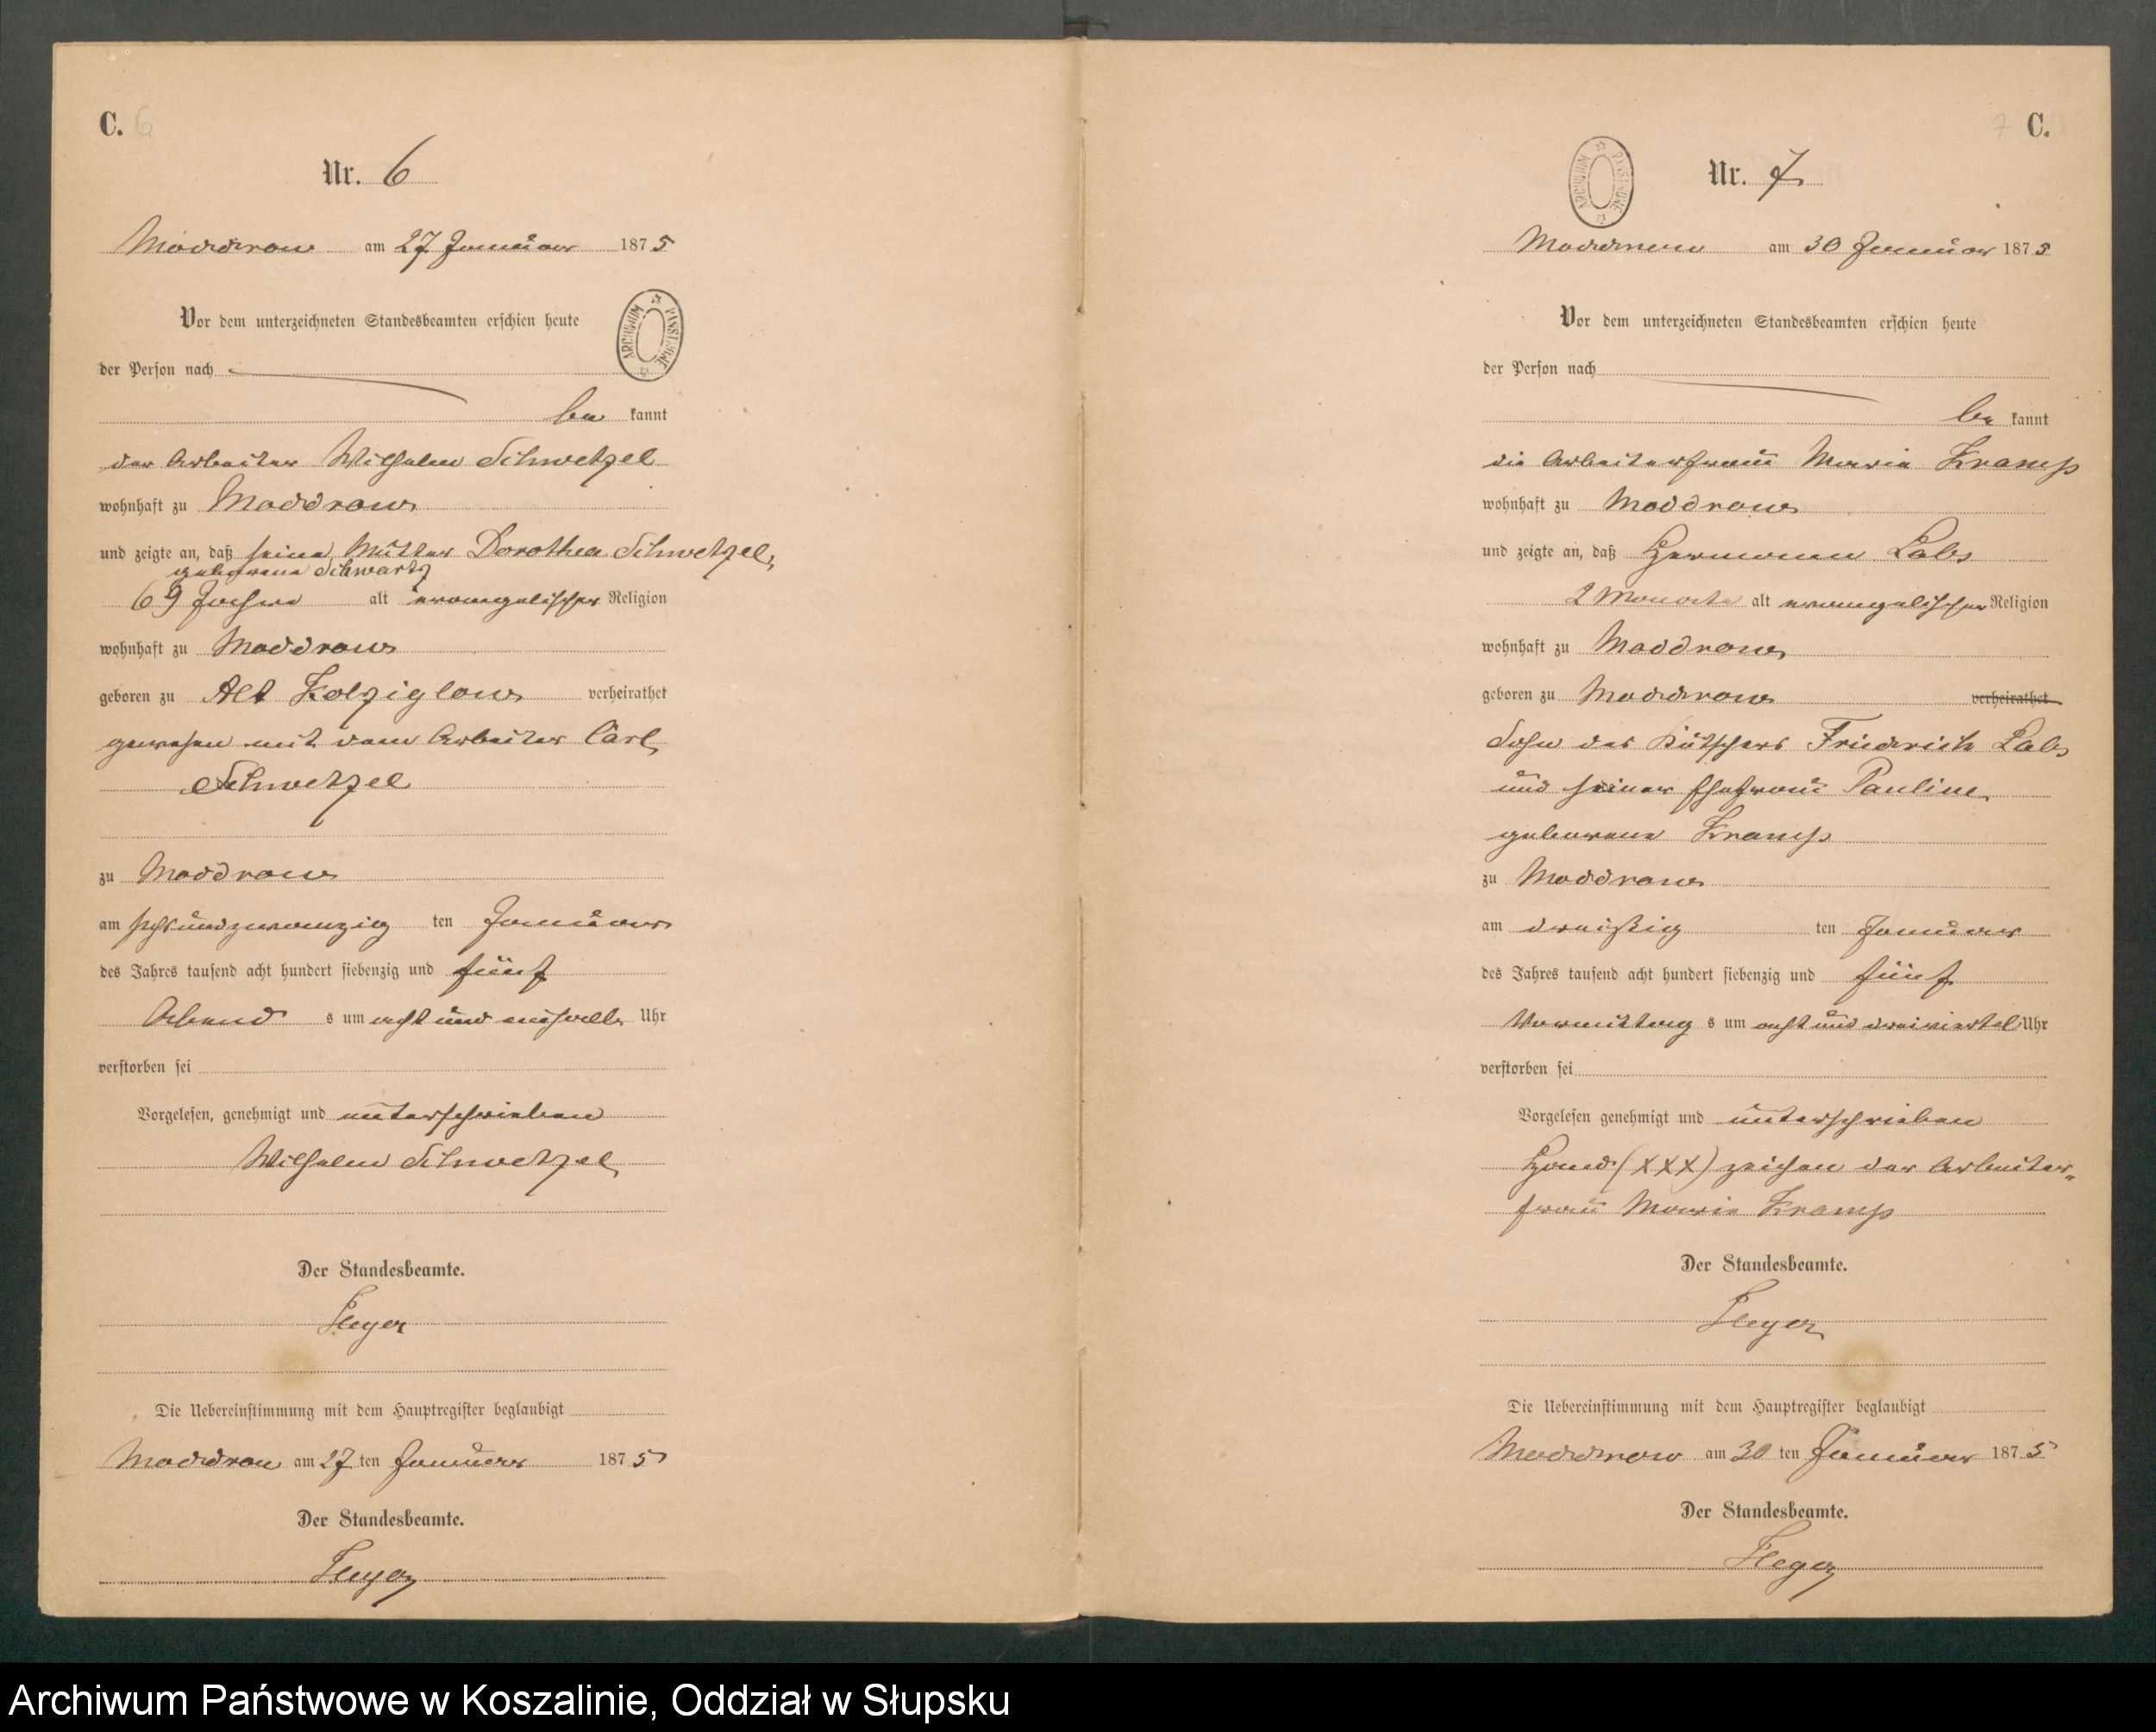 C. 6
Nr. 6
Moddrow am 27 Januar 1875
Vor dem unterzeichneten Standesbeamten erschien heute
der Person nach
be kannt
der Arbeiter Wilhelm Schwetzel
wohnhaft zu Moddrow
und zeigte an, daß seine Mutter Dorothea Schwetzel,
geborene Schwartz
69 Jahre alt evangelischer Religion
wohnhaft zu Moddrow
geboren zu Alt Kolziglow verheirathet
gewesen mit dem Arbeiter Carl
Schwetzel
zu Moddrow
am sechsundzwanzig ten Januar
des Jahres tausend acht hundert siebenzig und fünf
Abend s um acht und einhalb Uhr
verstorben sei
Vorgelesen, genehmigt und unterschrieben
Wilhelm Schwetzel
Der Standesbeamte.
Die Uebereinstimmung mit dem Hauptregister beglaubigt
Moddrow am 27 ten Januar 1875
Der Standesbeamte.
7 C.
ARCHIWUM PAŃSTWOWE
Nr. 7
Moddrow am 30 Januar 1875
Vor dem unterzeichneten Standesbeamten erschien heute
der Person nach
be kannt
die Arbeiterfrau Marie Kramp
wohnhaft zu Moddrow
und zeigte an, daß Hermann Labs
2 Monate alt evangelischer Religion
wohnhaft zu Moddrow
geboren zu Moddrow verheirathet
Sohn des Kutschers Friedrich Labs
und seiner Ehefrau Pauline
geborene Kramp
zu Moddrow
am dreißig ten Januar
des Jahres tausend acht hundert siebenzig und fünf
Vormittag s um acht und dreiviertel Uhr
verstorben sei
Vorgelesen genehmigt und unterschrieben
Hand (XXX) zeichen der Arbeiter„
frau Marie Kramp
Der Standesbeamte.
Die Uebereinstimmung mit dem Hauptregister beglaubigt
Moddrow am 30 ten Januar 1875
Der Standesbeamte.
Archiwum Państwowe w Koszalinie, Oddział w Słupsku